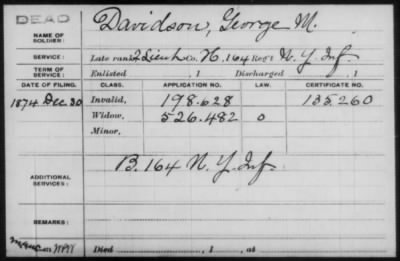 DEAD
NAME OF SOLDIER: Davidson, George M.
SERVICE: Late rank 2 Lieut, Co. H, 164 Reg't N. Y. Inf
TERM OF SERVICE: Enlisted , 1 Discharged , 1
DATE OF FILING. CLASS. APPLICATION NO. LAW. CERTIFICATE NO.
1874 Dec 30 Invalid, 198.628 135.260
Widow, 526.482 0
Minor,
ADDITIONAL SERVICES: B. 164 N. Y. Inf.
REMARKS:
Died , 1 , at